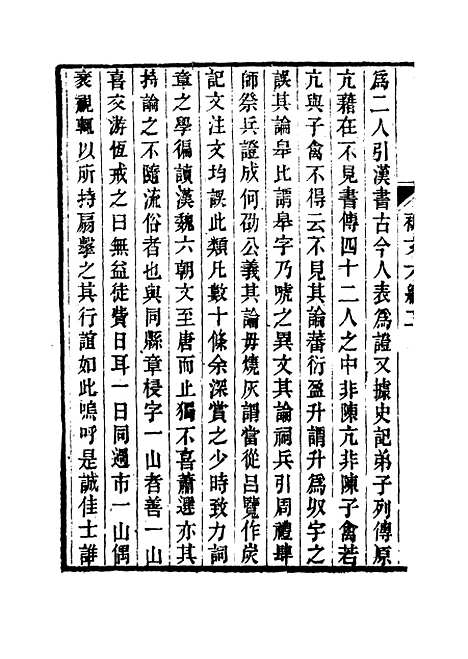 爲二人引漢書古今人表爲證又據史記弟子列傳原
亢藉在不見書傳四十二人之中非陳亢非陳子禽若
亢與子禽不得云不見其論蕃衍盈升謂升爲㕥字之
誤其論皐比謂皐字乃虓之異文其論祠兵引周禮肆
師祭兵證成何劭公義其論毋燒灰謂當從呂覽作炭
記文注文均誤此類凡數十條余深賞之少時致力詞
章之學徧讀漢魏六朝文至唐而止獨不喜蕭選亦其
持論之不隨流俗者也與同縣章梫字一山者善一山
喜交游恆戒之曰無益徒費日耳一日同過市一山偶
衺視輒以所持扇擊之其行誼如此嗚呼是誠佳士誰